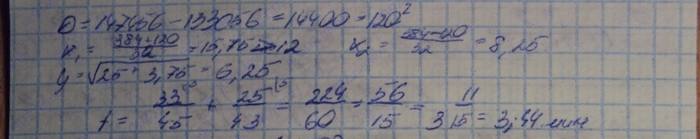 D = 147456 - 133056 = 14400 = 120²
x₁ = 384+120 / 32 = 15,75 > 12 x₂ = 384-120 / 32 = 8,25
y = √25 + 3,75 = 6,25
t = 33/45 + 25/43 = 224/60 = 56/15 = 3 11/15 = 3,44 мин